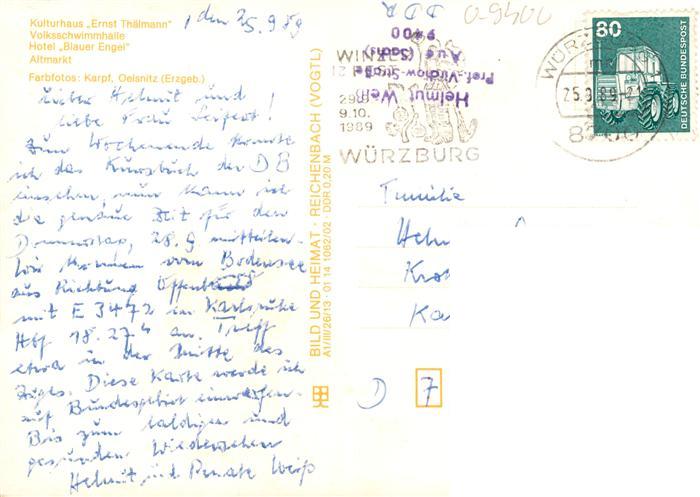 Kulturhaus „Ernst Thälmann"
Volksschwimmhalle
Hotel „Blauer Engel"
Altmarkt
Farbfotos: Karpf, Oelsnitz (Erzgeb.)
den 25.9.89
Lieber Helmut und
liebe Frau Seifert!
Zum Wochenende konnte
ich das Kursbuch der DB
einsehen, nun kann ich
die genaue Zeit für den
Donnerstag, 28.9 mitteilen.
Wir kommen vom Bodensee
aus Richtung Offenburg
mit E 3472 in Karlsruhe
Hbf 18.27 an. Treff
etwa in der Mitte des
Zuges. Diese Karte werde ich
auf Bundesgebiet einwerfen.
Bis zum baldigen und
gesunden Wiedersehen
Helmut und Renate Weiß
BILD UND HEIMAT · REICHENBACH (VOGTL)
A1/III/26/13 · 01 14 1062/02 · DDR 0,20 M
DDR
0-9400
Helmut Weiß
Prof.-Virchow-Straße
Aue (Sachs)
9400
29.9.
9.10.
1989
WÜRZBURG
WÜRZ
25.9.89-21
8700
80
DEUTSCHE BUNDESPOST
Familie
Helm
Ka
D 7